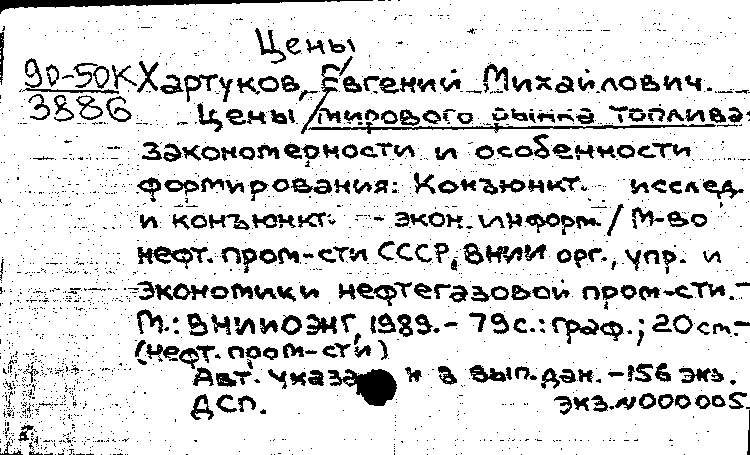 Цены
90-50К Хартуков, Евгений Михайлович.
3886 Цены / мирового рынка топлива:
закономерности и особенности
формирования: Конъюнкт. исслед.
и конъюнкт. - экон. информ. / М-во
нефт. пром-сти СССР, ВНИИ орг., упр. и
экономики нефтегазовой пром-сти. -
М.: ВНИИОЭНГ, 1989. - 79 с.: граф.; 20 см. -
(Нефт. пром-сти)
Авт. указа н в вып. дан. - 156 экз.
ДСП. Экз. N000005